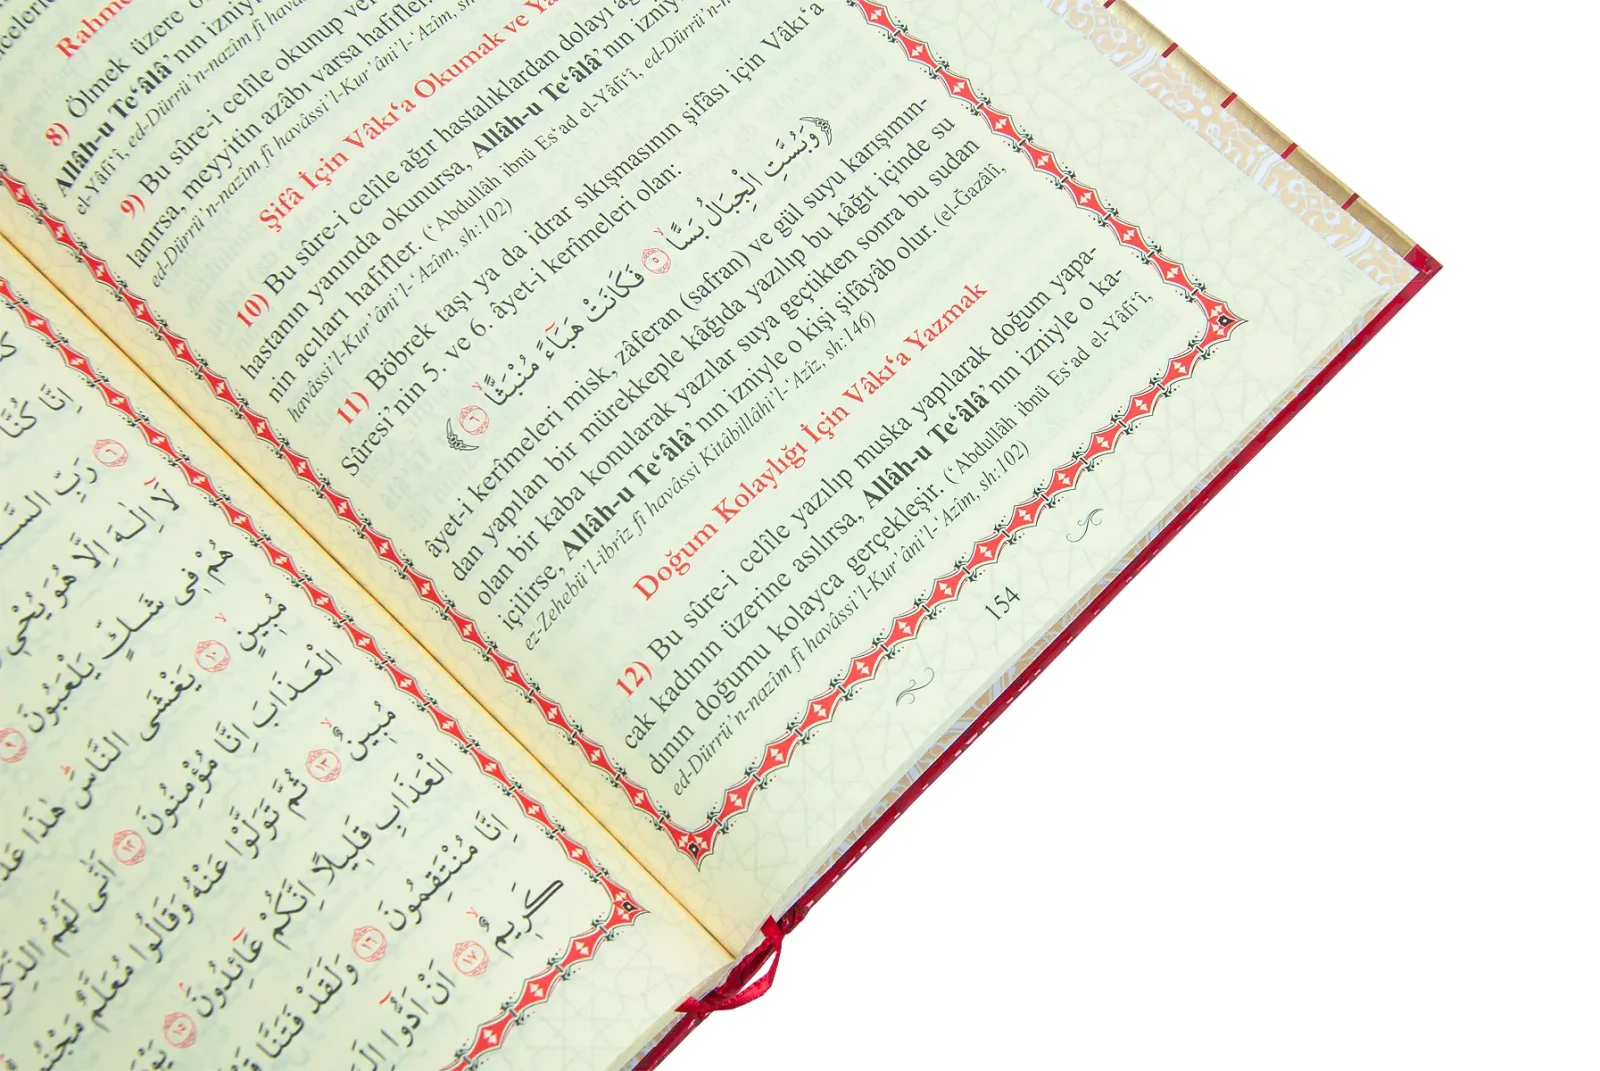 Rahme
8) Ölmek üzere o
Allâh-u Te‘âlâ’nın izniy
el-Yâfi‘î, ed-Dürrü’n-nazîm fî havâ
9) Bu sûre-i celîle okunup ve
lanırsa, meyyitin azâbı varsa hafifler.
ed-Dürrü’n-nazîm fî havâssi’l-Kur’âni’l-‘Azîm, sh
Şifâ İçin Vâkı‘a Okumak ve Ya
10) Bu sûre-i celîle ağır hastalıklardan dolayı ağ
hastanın yanında okunursa, Allâh-u Te‘âlâ’nın izniy
nin acıları hafifler. (‘Abdullâh ibnü Es‘ad el-Yâfi‘î, ed-Dürrü’n-n
havâssi’l-Kur’âni’l-‘Azîm, sh:102)
11) Böbrek taşı ya da idrar sıkışmasının şifâsı için Vâkı‘a
Sûresi’nin 5. ve 6. âyet-i kerîmeleri olan:
وَبُسَّتِ الْجِبَالُ بَسًّاۙ ﴿٥﴾ فَكَانَتْ هَبَٓاءً مُنْبَثًّاۙ ﴿٦﴾
âyet-i kerîmeleri misk, zâferan (safran) ve gül suyu karışımın-
dan yapılan bir mürekkeple kâğıda yazılıp bu kâğıt içinde su
olan bir kaba konularak yazılar suya geçtikten sonra bu sudan
içilirse, Allâh-u Te‘âlâ’nın izniyle o kişi şifâyâb olur. (el-Ğazâlî,
ez-Zehebü’l-ibrîz fî havâssi Kitâbillâhi’l-‘Azîz, sh:146)
Doğum Kolaylığı İçin Vâkı‘a Yazmak
12) Bu sûre-i celîle yazılıp muska yapılarak doğum yapa-
cak kadının üzerine asılırsa, Allâh-u Te‘âlâ’nın izniyle o ka-
dının doğumu kolayca gerçekleşir. (‘Abdullâh ibnü Es‘ad el-Yâfi‘î,
ed-Dürrü’n-nazîm fî havâssi’l-Kur’âni’l-‘Azîm, sh:102)
154
اِنَّا كُنَّا
﴿٦﴾ رَبِّ السَّمـ
لَٓا اِلٰهَ اِلَّا هُوَ يُحْيٖ
هُمْ فٖي شَكٍّ يَلْعَبُونَ ﴿٩﴾
مُبٖينٍۙ ﴿١٠﴾ يَغْشَى النَّاسَۜ هٰذَا عَذَ
الْعَذَابَ اِنَّا مُؤْمِنُونَ ﴿١٢﴾ اَنّٰى لَهُمُ الذِّكْرٰ
مُبٖينٌۙ ﴿١٣﴾ ثُمَّ تَوَلَّوْا عَنْهُ وَقَالُوا مُعَلَّمٌ مَجْنُو
الْعَذَابِ قَلٖيلًا اِنَّكُمْ عَٓائِدُونَۢ ﴿١٥﴾ يَوْ
اِنَّا مُنْتَقِمُونَ ﴿١٦﴾ وَلَقَدْ فَتَنَّا قَ
كَرٖيمٌۙ ﴿١٧﴾ اَنْ اَدُّٓوا اِلَـ